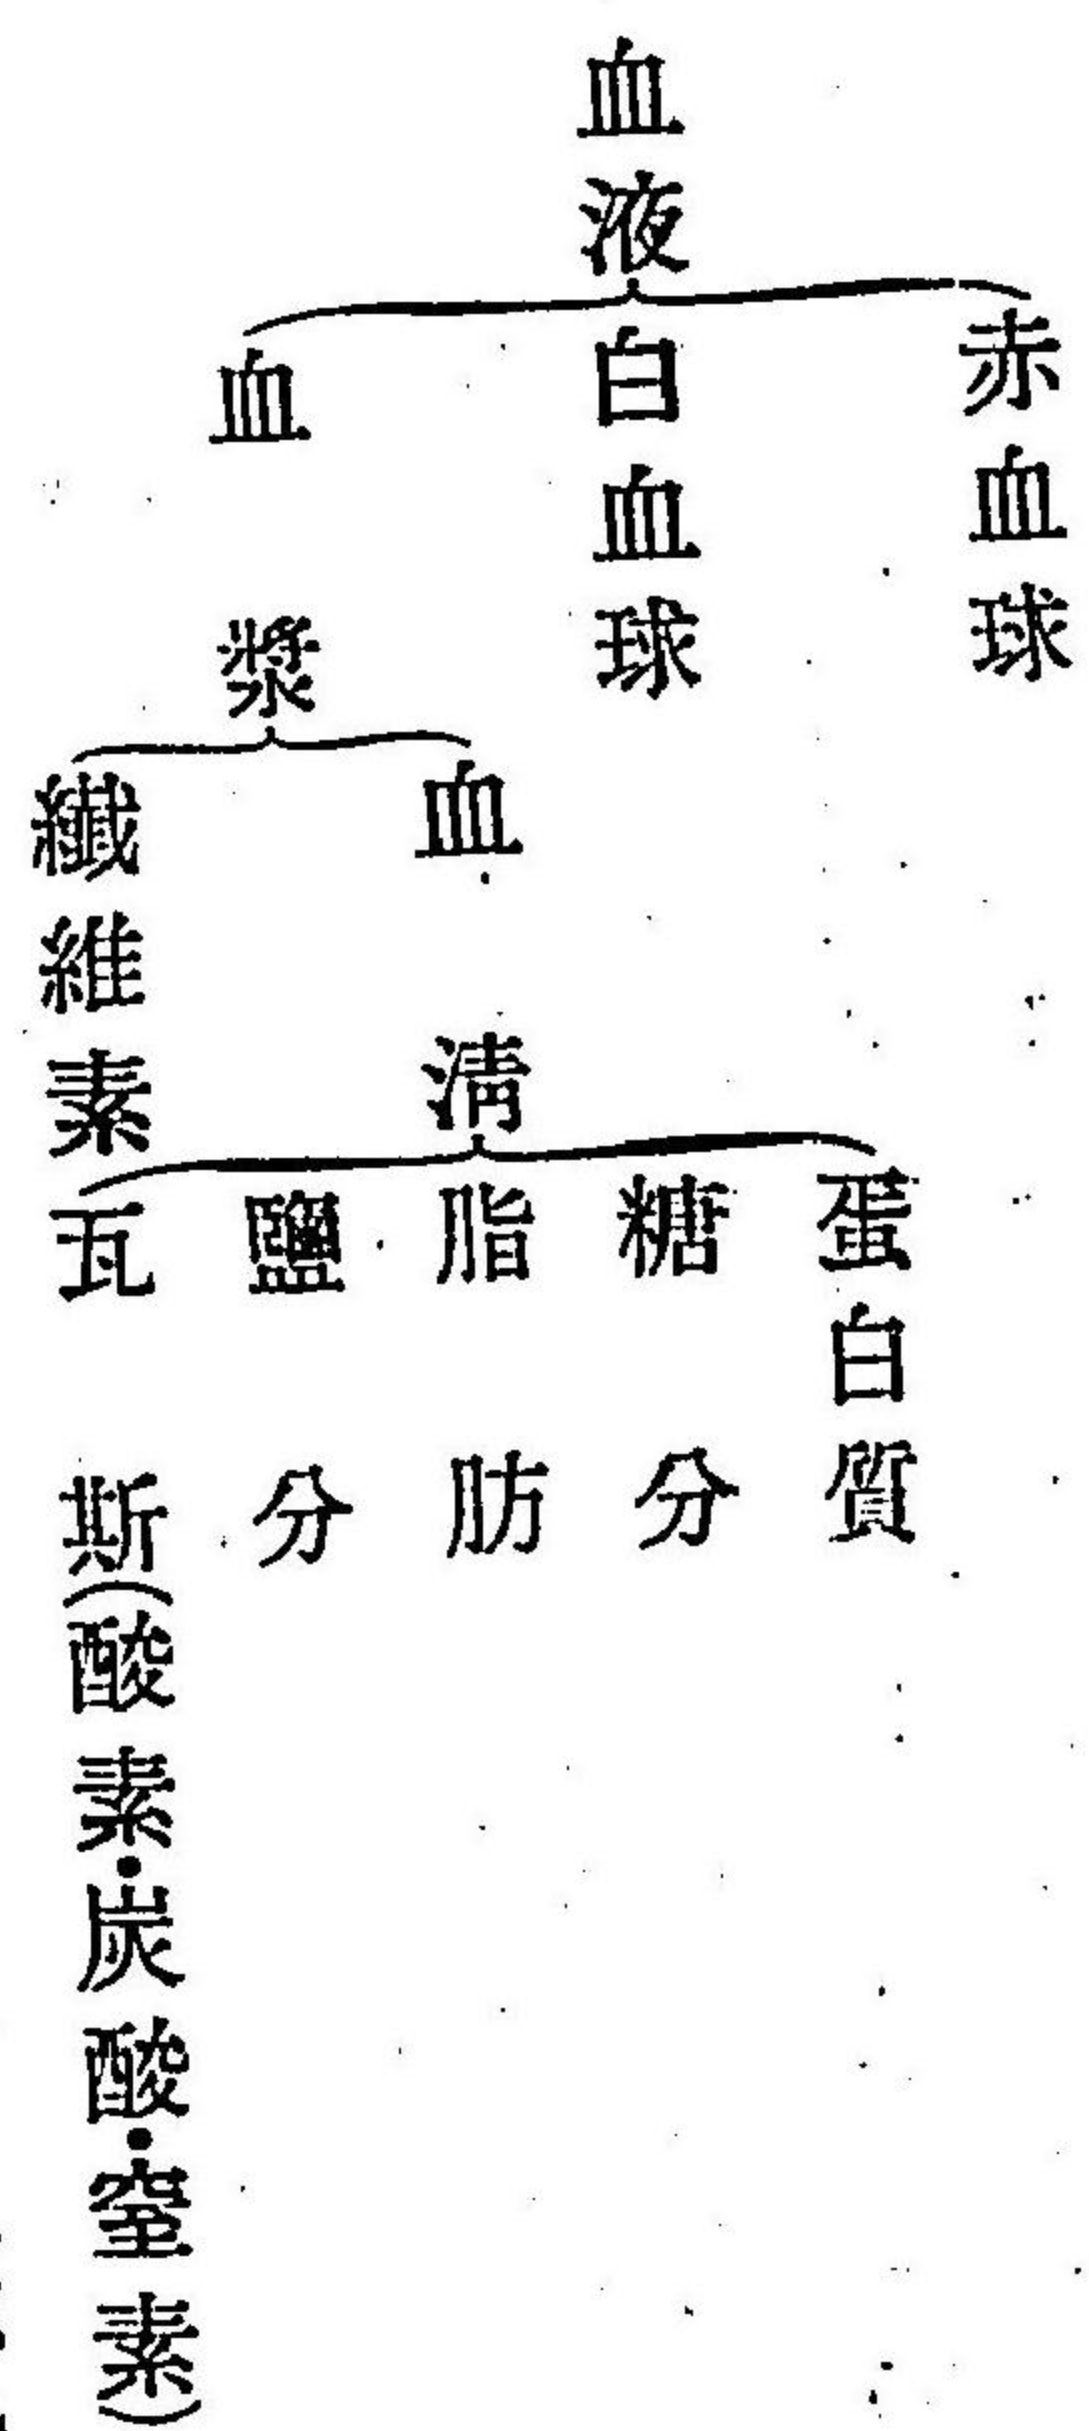 血液
赤血球
白血球
血漿
血清
纖維素
蛋白質
糖分
脂肪
鹽分
瓦斯(酸素・炭酸・窒素)